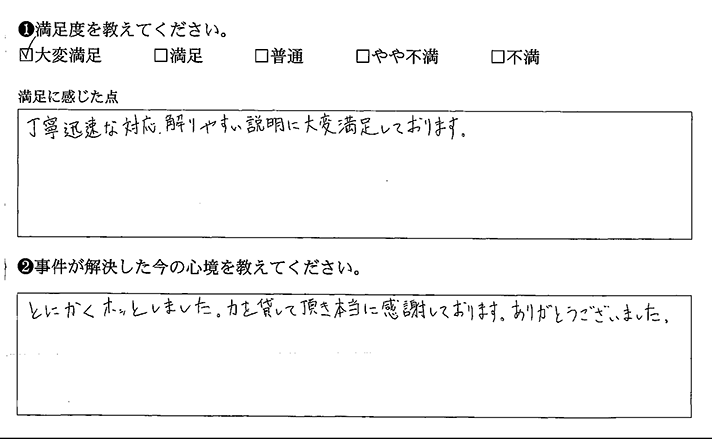 ❶満足度を教えてください。
☑大変満足 □満足 □普通 □やや不満 □不満
満足に感じた点
丁寧迅速な対応、解りやすい説明に大変満足しております。
❷事件が解決した今の心境を教えてください。
とにかくホッとしました。力を貸して頂き本当に感謝しております。ありがとうございました。